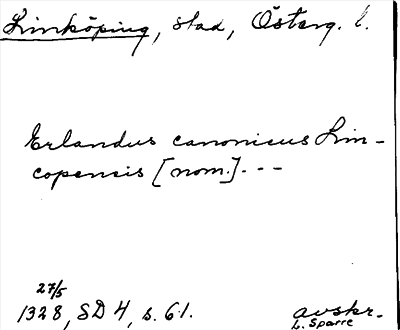 Linköping, stad, Österg. l.
Erlandus canonicus Lin-
copensis [nom.]. - - -
27/5
1328, SD 4, s. 61.
avskr.
L. Sparre